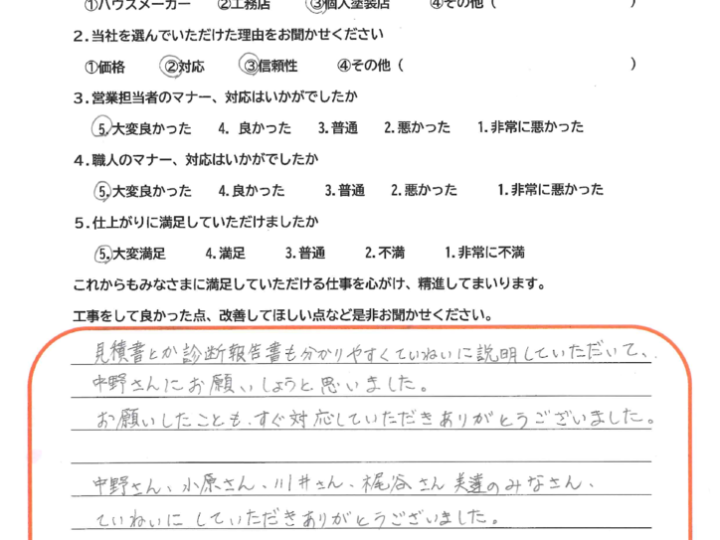 ①ハウスメーカー ②工務店 ③個人塗装店 ④その他( )
2.当社を選んでいただけた理由をお聞かせください
①価格 ②対応 ③信頼性 ④その他( )
3.営業担当者のマナー、対応はいかがでしたか
5.大変良かった 4.良かった 3.普通 2.悪かった 1.非常に悪かった
4.職人のマナー、対応はいかがでしたか
5.大変良かった 4.良かった 3.普通 2.悪かった 1.非常に悪かった
5.仕上がりに満足していただけましたか
5.大変満足 4.満足 3.普通 2.不満 1.非常に不満
これからもみなさまに満足していただける仕事を心がけ、精進してまいります。
工事をして良かった点、改善してほしい点など是非お聞かせください。
見積書とか診断報告書も分かりやすくていねいに説明していただいて、
中野さんにお願いしようと思いました。
お願いしたことも、すぐ対応していただきありがとうございました。
中野さん、小原さん、川井さん、梶谷さん 美達のみなさん、
ていねいにしていただきありがとうございました。